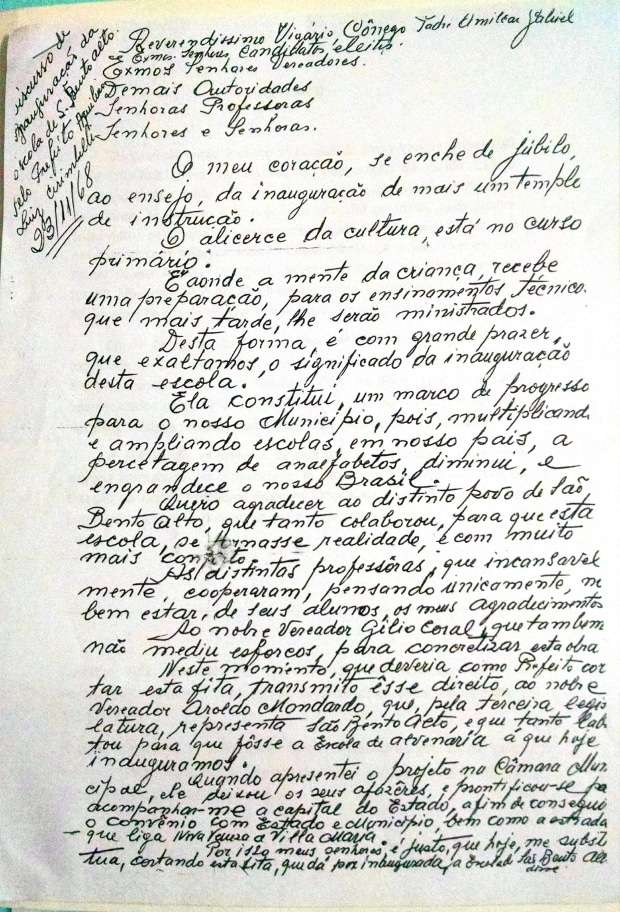 Discurso de
inauguração da
escola de S. Bento Alto.
pelo Prefeito
Luiz
23/11/68
Reverendissimo Vigário, Cônego Padre Amilcar Gabriel
e Exmos. Senhores Candidatos, eleitos.
Exmos Senhores Vereadores.
Demais Autoridades
Senhoras Professoras
Senhores e Senhoras.
O meu coração, se enche de júbilo,
ao ensejo, da inauguração de mais um templo
de instrucão.
O alicerce da cultura, está no curso
primário.
É aonde a mente da criança, recebe
uma preparação, para os ensinamentos técnico.
que mais tarde, lhe serão ministrados.
Desta forma, é com grande prazer,
que exaltamos, o significado da inauguração
desta escola.
Ela constitui, um marco de progresso
para o nosso Municipio, pois, multiplicand
e ampliando escolas, em nosso pais, a
percetagem de analfabetos, diminui, e
engrandece o nosso Brasil.
Quero agradecer ao distinto povo de São
Bento Alto, que tanto colaborou, para que esta
escola, se tornasse realidade, e com muito
mais conforto.
As distintas professôras, que incansavel
mente, cooperaram, pensando unicamente, n
bem estar, de seus alunos, os meus agradecimentos
Ao nobre Vereador Gílio Coral, que também
não mediu esforcos, para concretizar esta obra
Neste momento, que deveria como Prefeito cor
tar esta fita, transmito êsse direito, ao nobre
Vereador Aroldo Mondardo, que, pela terceira legis
latura, representa São Bento Alto, e que tanto lab
tou para que fôsse a Escola de alvenária a que hoje
inauguramos.
Quando apresentei o projeto na Câmara Mun
cipal, ele deixou os seus afazêres, e prontificou-se pa
acompanhar-me a capital do Estado, a fim de consegui
o convênio com Estado e Municipio, bem como a estrada
que liga Nova Veneza a Villa Maria.
Por isso meus senhores, é justo, que hoje, me substi
tua, cortando esta fita, que dá por inaugurada, a Escola de São Bento Alto